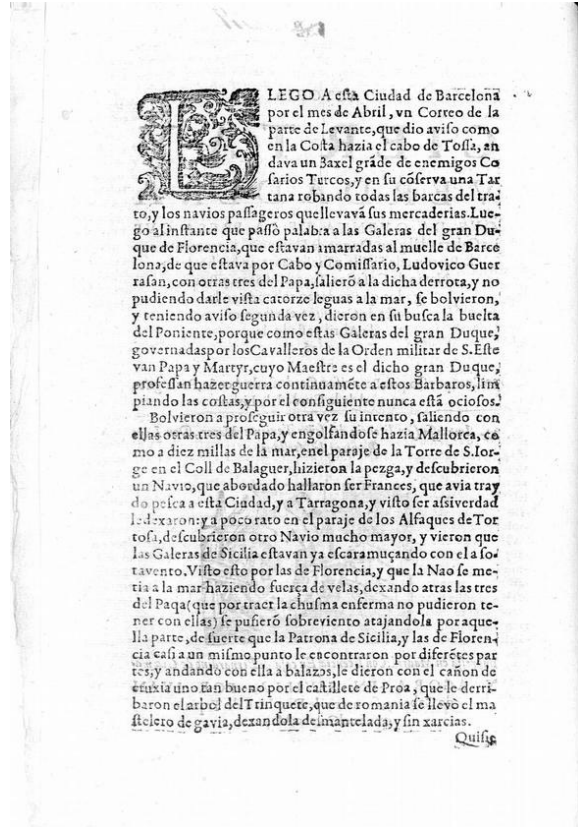 LLEGO A esta Ciudad de Barcelona
por el mes de Abril, vn Correo de la
parte de Levante, que dio aviso como
en la Costa hazia el cabo de Tossa, an
dava un Baxel gráde de enemigos Co
sarios Turcos, y en su cõserva una Tar
tana robando todas las barcas del tra-
to, y los navios passageros que llevavã sus mercaderias. Lue-
go al instante que passò palabra a las Galeras del gran Du-
que de Florencia, que estavan amarradas al muelle de Barce
lona, de que estava por Cabo y Comissario, Ludovico Guer
rasan, con otras tres del Papa, salierõ a la dicha derrota, y no
pudiendo darle vista catorze leguas a la mar, se bolvieron,
y teniendo aviso segunda vez, dieron en su busca la buelta
del Poniente, porque como estas Galeras del gran Duque,
governadas por los Cavalleros de la Orden militar de S. Este
van Papa y Martyr, cuyo Maestre es el dicho gran Duque,
professan hazer guerra continuamẽte a estos Barbaros, lim
piando las costas, y por el consiguiente nunca estã ociosos.
Bolvieron a proseguir otra vez su intento, saliendo con
ellas otras tres del Papa, y engolfandose hazia Mallorca, co
mo a diez millas de la mar, en el paraje de la Torre de S. Ior-
ge en el Coll de Balaguer, hizieron la pezga, y descubrieron
un Navio, que abordado hallaron ser Frances, que avia tray
do pesca a esta Ciudad, y a Tarragona, y visto ser assi verdad
le dexaron: y a poco rato en el paraje de los Alfaques de Tor
tosa, descubrieron otro Navio mucho mayor, y vieron que
las Galeras de Sicilia estavan ya escaramuçando con el a so-
tavento. Visto esto por las de Florencia, y que la Nao se me-
tia a la mar haziendo fuerça de velas, dexando atras las tres
del Papa (que por traer la chusma enferma no pudieron te-
ner con ellas) se pusierõ sobreviento atajandola por aque-
lla parte, de suerte que la Patrona de Sicilia, y las de Floren-
cia casi a un mismo punto le encontraron por diferẽtes par
tes, y andando con ella a balazos, le dieron con el cañon de
cruxia uno tan bueno por el castillete de Proa, que le derri-
baron el arbol del Trinquete, que de romania se llevò el ma
stelero de gavia, dexandola desmantelada, y sin xarcias.
Quisie